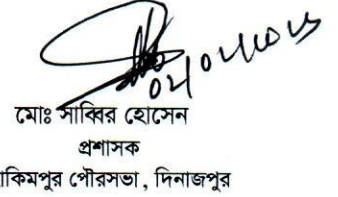 মোঃ সাব্বির হোসেন
প্রশাসক
াকিমপুর পৌরসভা, দিনাজপুর